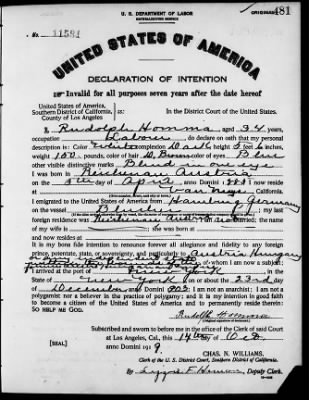 U. S. DEPARTMENT OF LABOR
NATURALIZATION SERVICE
ORIGINAL 481
No. 11581
UNITED STATES OF AMERICA
DECLARATION OF INTENTION
Invalid for all purposes seven years after the date hereof
United States of America,
Southern District of California,
County of Los Angeles
ss:
In the District Court of the United States.
I, Rudolph Homma, aged 34 years,
occupation Labour, do declare on oath that my personal
description is: Color White, complexion Dark, height 5 feet 6 inches,
weight 150 pounds, color of hair D. Brown, color of eyes Blue
other visible distinctive marks Blind in one eye
I was born in Reichenau Austria
on the day of April, anno Domini 1885; I now reside
at Van Nuys, California.
I emigrated to the United States of America from Hamburg Germany
on the vessel Blücher; my last
foreign residence was Reichenau Austria; I am married; the name
of my wife is ; she was born at
and now resides at
It is my bona fide intention to renounce forever all allegiance and fidelity to any foreign
prince, potentate, state, or sovereignty, and particularly to Austria Hungary
of whom I am now a subject;
I arrived at the port of New York, in the
State of New York, on or about the 23rd day
of December, anno Domini; I am not an anarchist; I am not a
polygamist nor a believer in the practice of polygamy; and it is my intention in good faith
to become a citizen of the United States of America and to permanently reside therein:
SO HELP ME GOD.
Rudolph Homma
(Original signature of declarant.)
Subscribed and sworn to before me in the office of the Clerk of said Court
[SEAL]
at Los Angeles, Cal., this 14th day of Oct
anno Domini 1919.
CHAS. N. WILLIAMS,
Clerk of the U. S. District Court, Southern District of California.
By, Deputy Clerk.